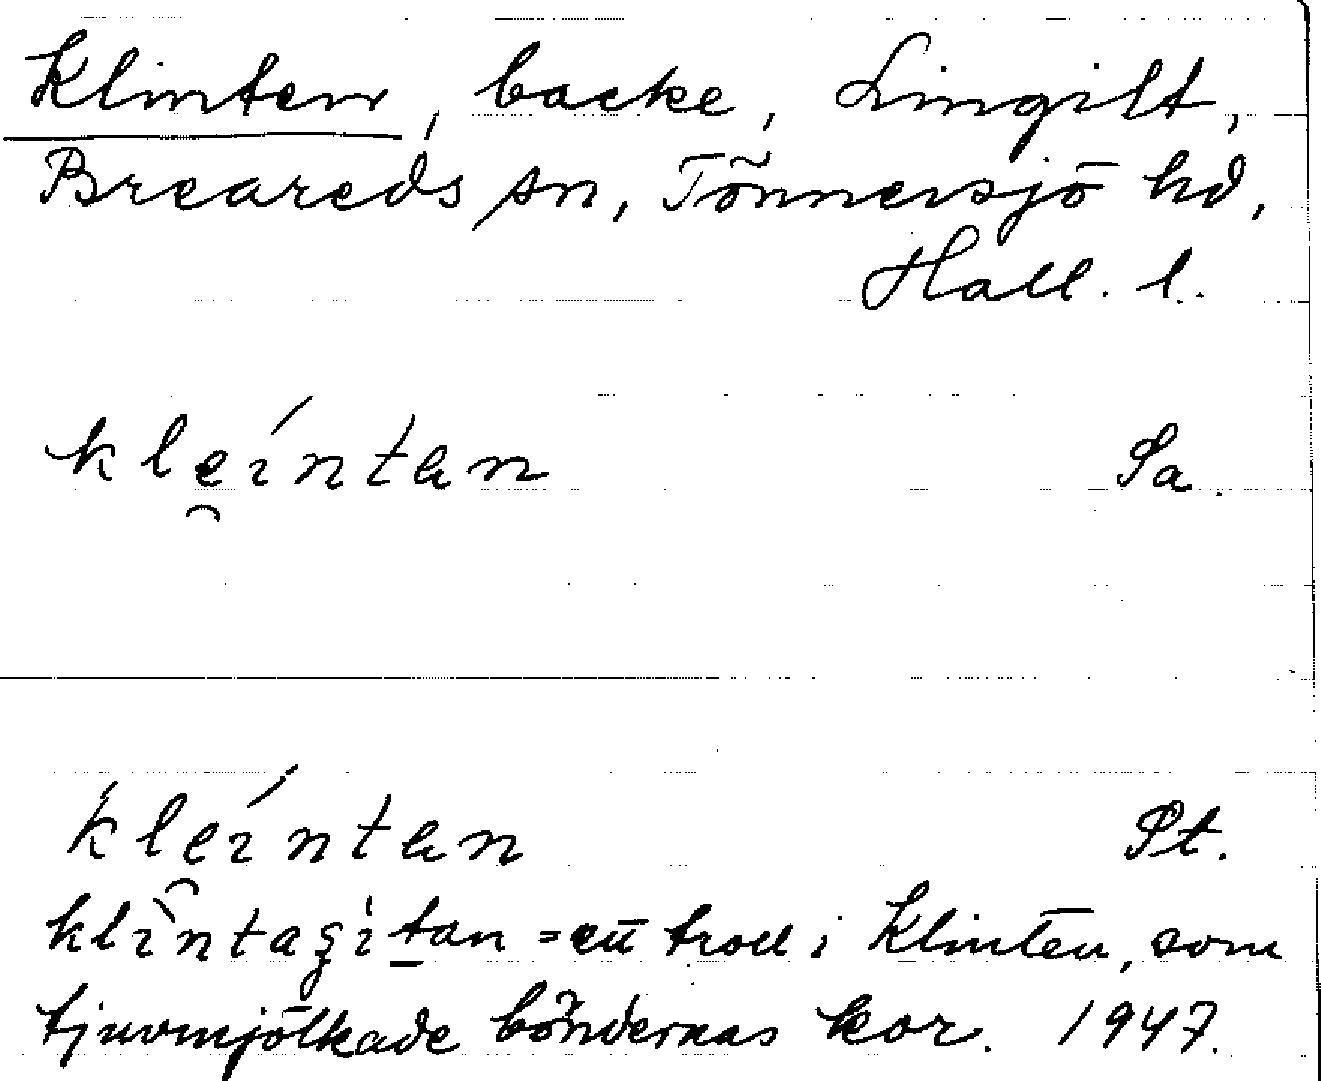 Klinten, backe, Lingilt,
Breareds sn, Tönnersjö hd,
Hall. l.
kleíntan Sa.
kleíntan Pt.
klìntagitan = ett troll i Klinten, som
tjuvmjölkade böndernas kor. 1947.